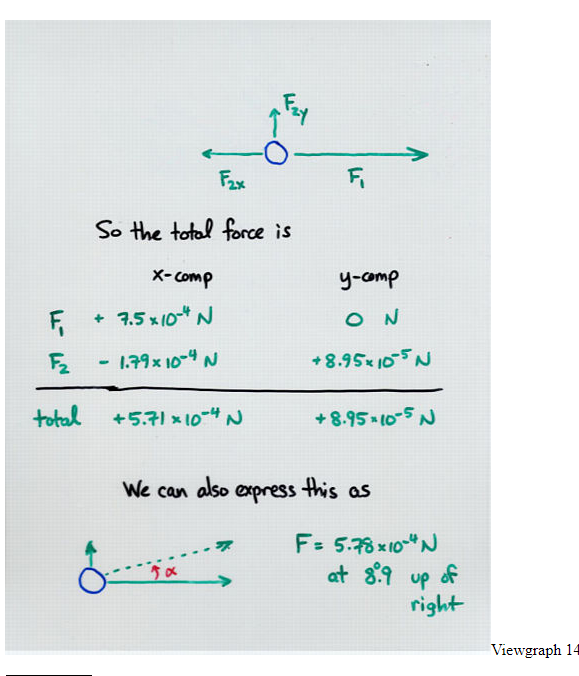 F2y
F2x F1
So the total force is
x-comp y-comp
F1 + 7.5 x 10^-4 N O N
F2 - 1.79 x 10^-4 N + 8.95 x 10^-5 N
total + 5.71 x 10^-4 N + 8.95 x 10^-5 N
We can also express this as
α F = 5.78 x 10^-4 N
at 8°.9 up of
right
Viewgraph 14